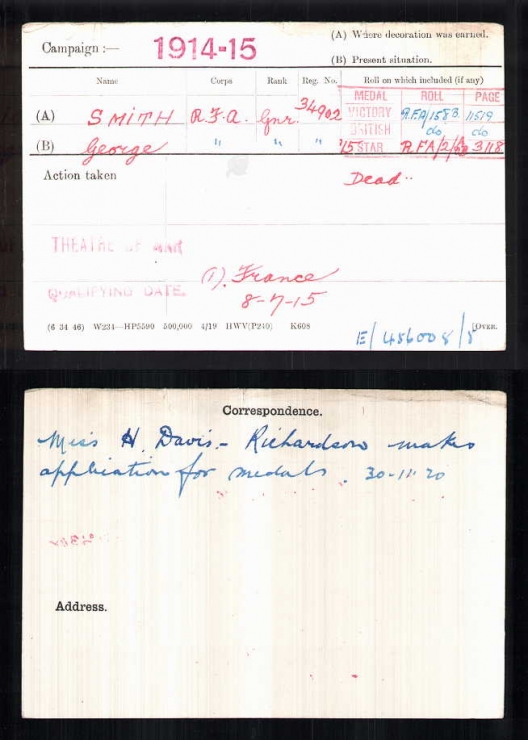 Campaign :— 1914-15 (A) Where decoration was earned.
(B) Present situation.
Name Corps Rank Reg. No. Roll on which included (if any)
MEDAL ROLL PAGE
(A) SMITH R.F.A. Gnr. 34902 VICTORY R.FA/158B. 11519
BRITISH do do
(B) George " " " '15 STAR R.FA/2/ 3118
Action taken Dead..
THEATRE OF WAR
(1). France
QUALIFYING DATE. 8-7-15
(6 34 46) W234—HP5590 500,000 4/19 HWV(P240) K608 [OVER.
E/456008/S
Correspondence.
Miss H. Davis-Richardson makes
application for medals. 30-11-20
Address.